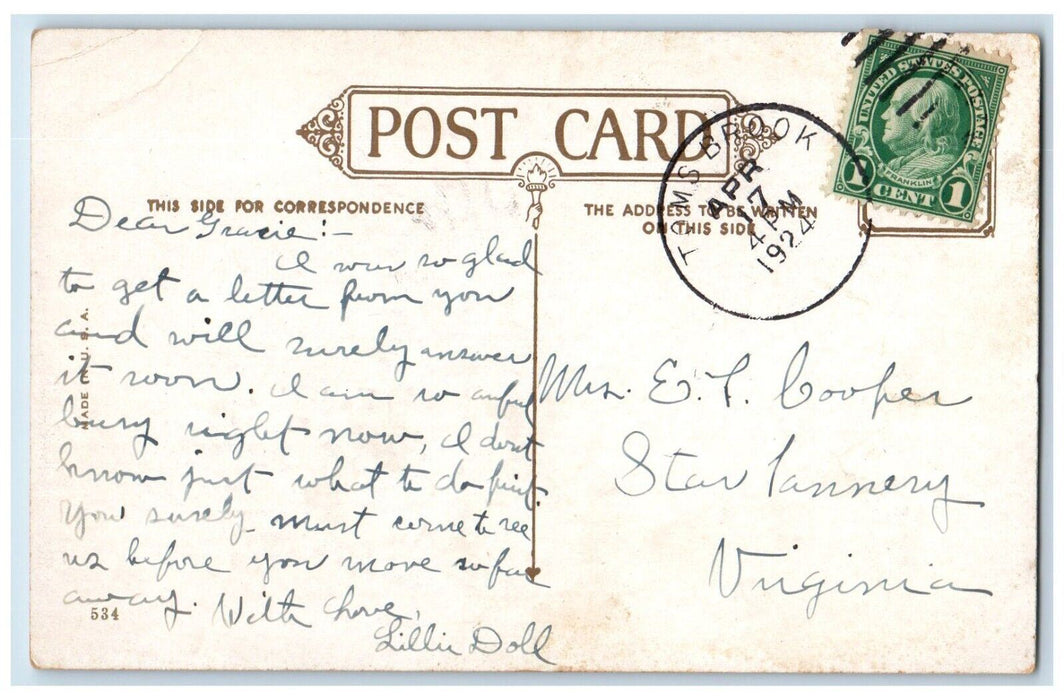 POST CARD
THIS SIDE FOR CORRESPONDENCE
THE ADDRESS TO BE WRITTEN
ON THIS SIDE
TOMS BROOK
APR
17
4 PM
1924
UNITED STATES POSTAGE
FRANKLIN
1 CENT 1
Dear Gracie:-
I was so glad
to get a letter from you
and will surely answer
it soon. I am so awful
busy right now, I dont
know just what to do first.
You surely must come to see
us before you move so far
away. With Love,
Lillie Doll
MADE IN U.S.A.
534
Mrs. E. F. Cooper
Star Tannery
Virginia